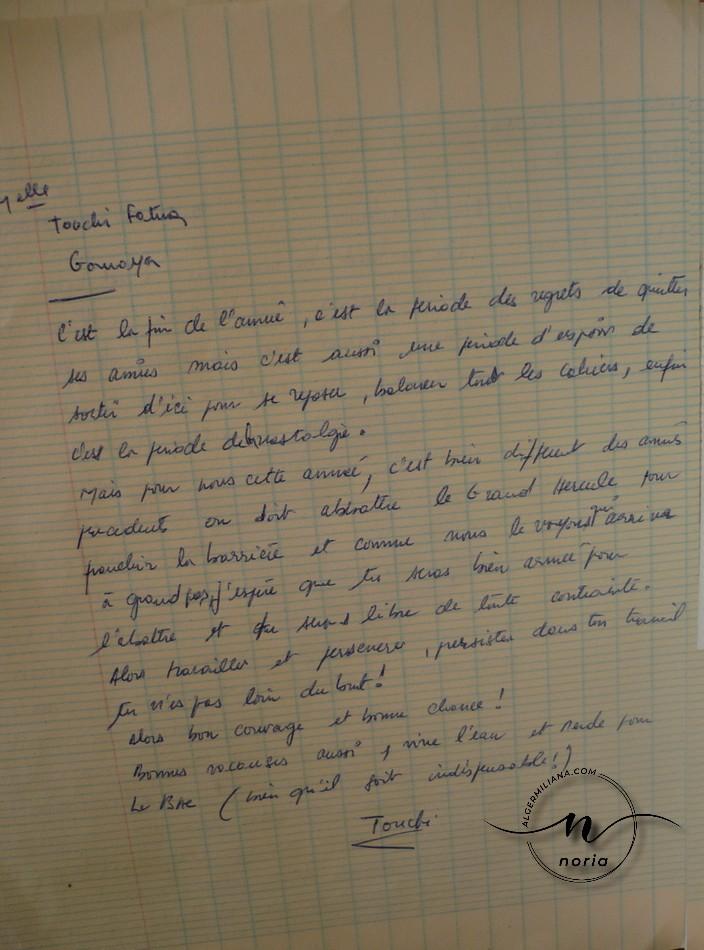 Melle
Touchi Fatma
C'est la fin de l'année, c'est la periode des regrets de quitter
ses amies mais c'est aussi une periode d'espoir de
sortir d'ici pour se reposer, balancer tout les cahiers, enfin
c'est la periode de nostalgie.
Mais pour nous cette année, c'est bien different des années
precedents on doit abbattre le Grand Hercule pour
franchir la barrière et comme nous le voyons qui arrive
à grand pas, j'espère que tu seras bien armée pour
l'abattre et tu seras libre de toute contrainte.
Alors travailler et perseverer, persister dans ton travail
tu n'es pas loin du but!
Alors bon courage et bonne chance!
Bonnes vacances aussi, vive l'eau et pour
Le BAC (bien qu'il soit indispensable!)
Touchi
ALGERMILIANA.COM
n
noria